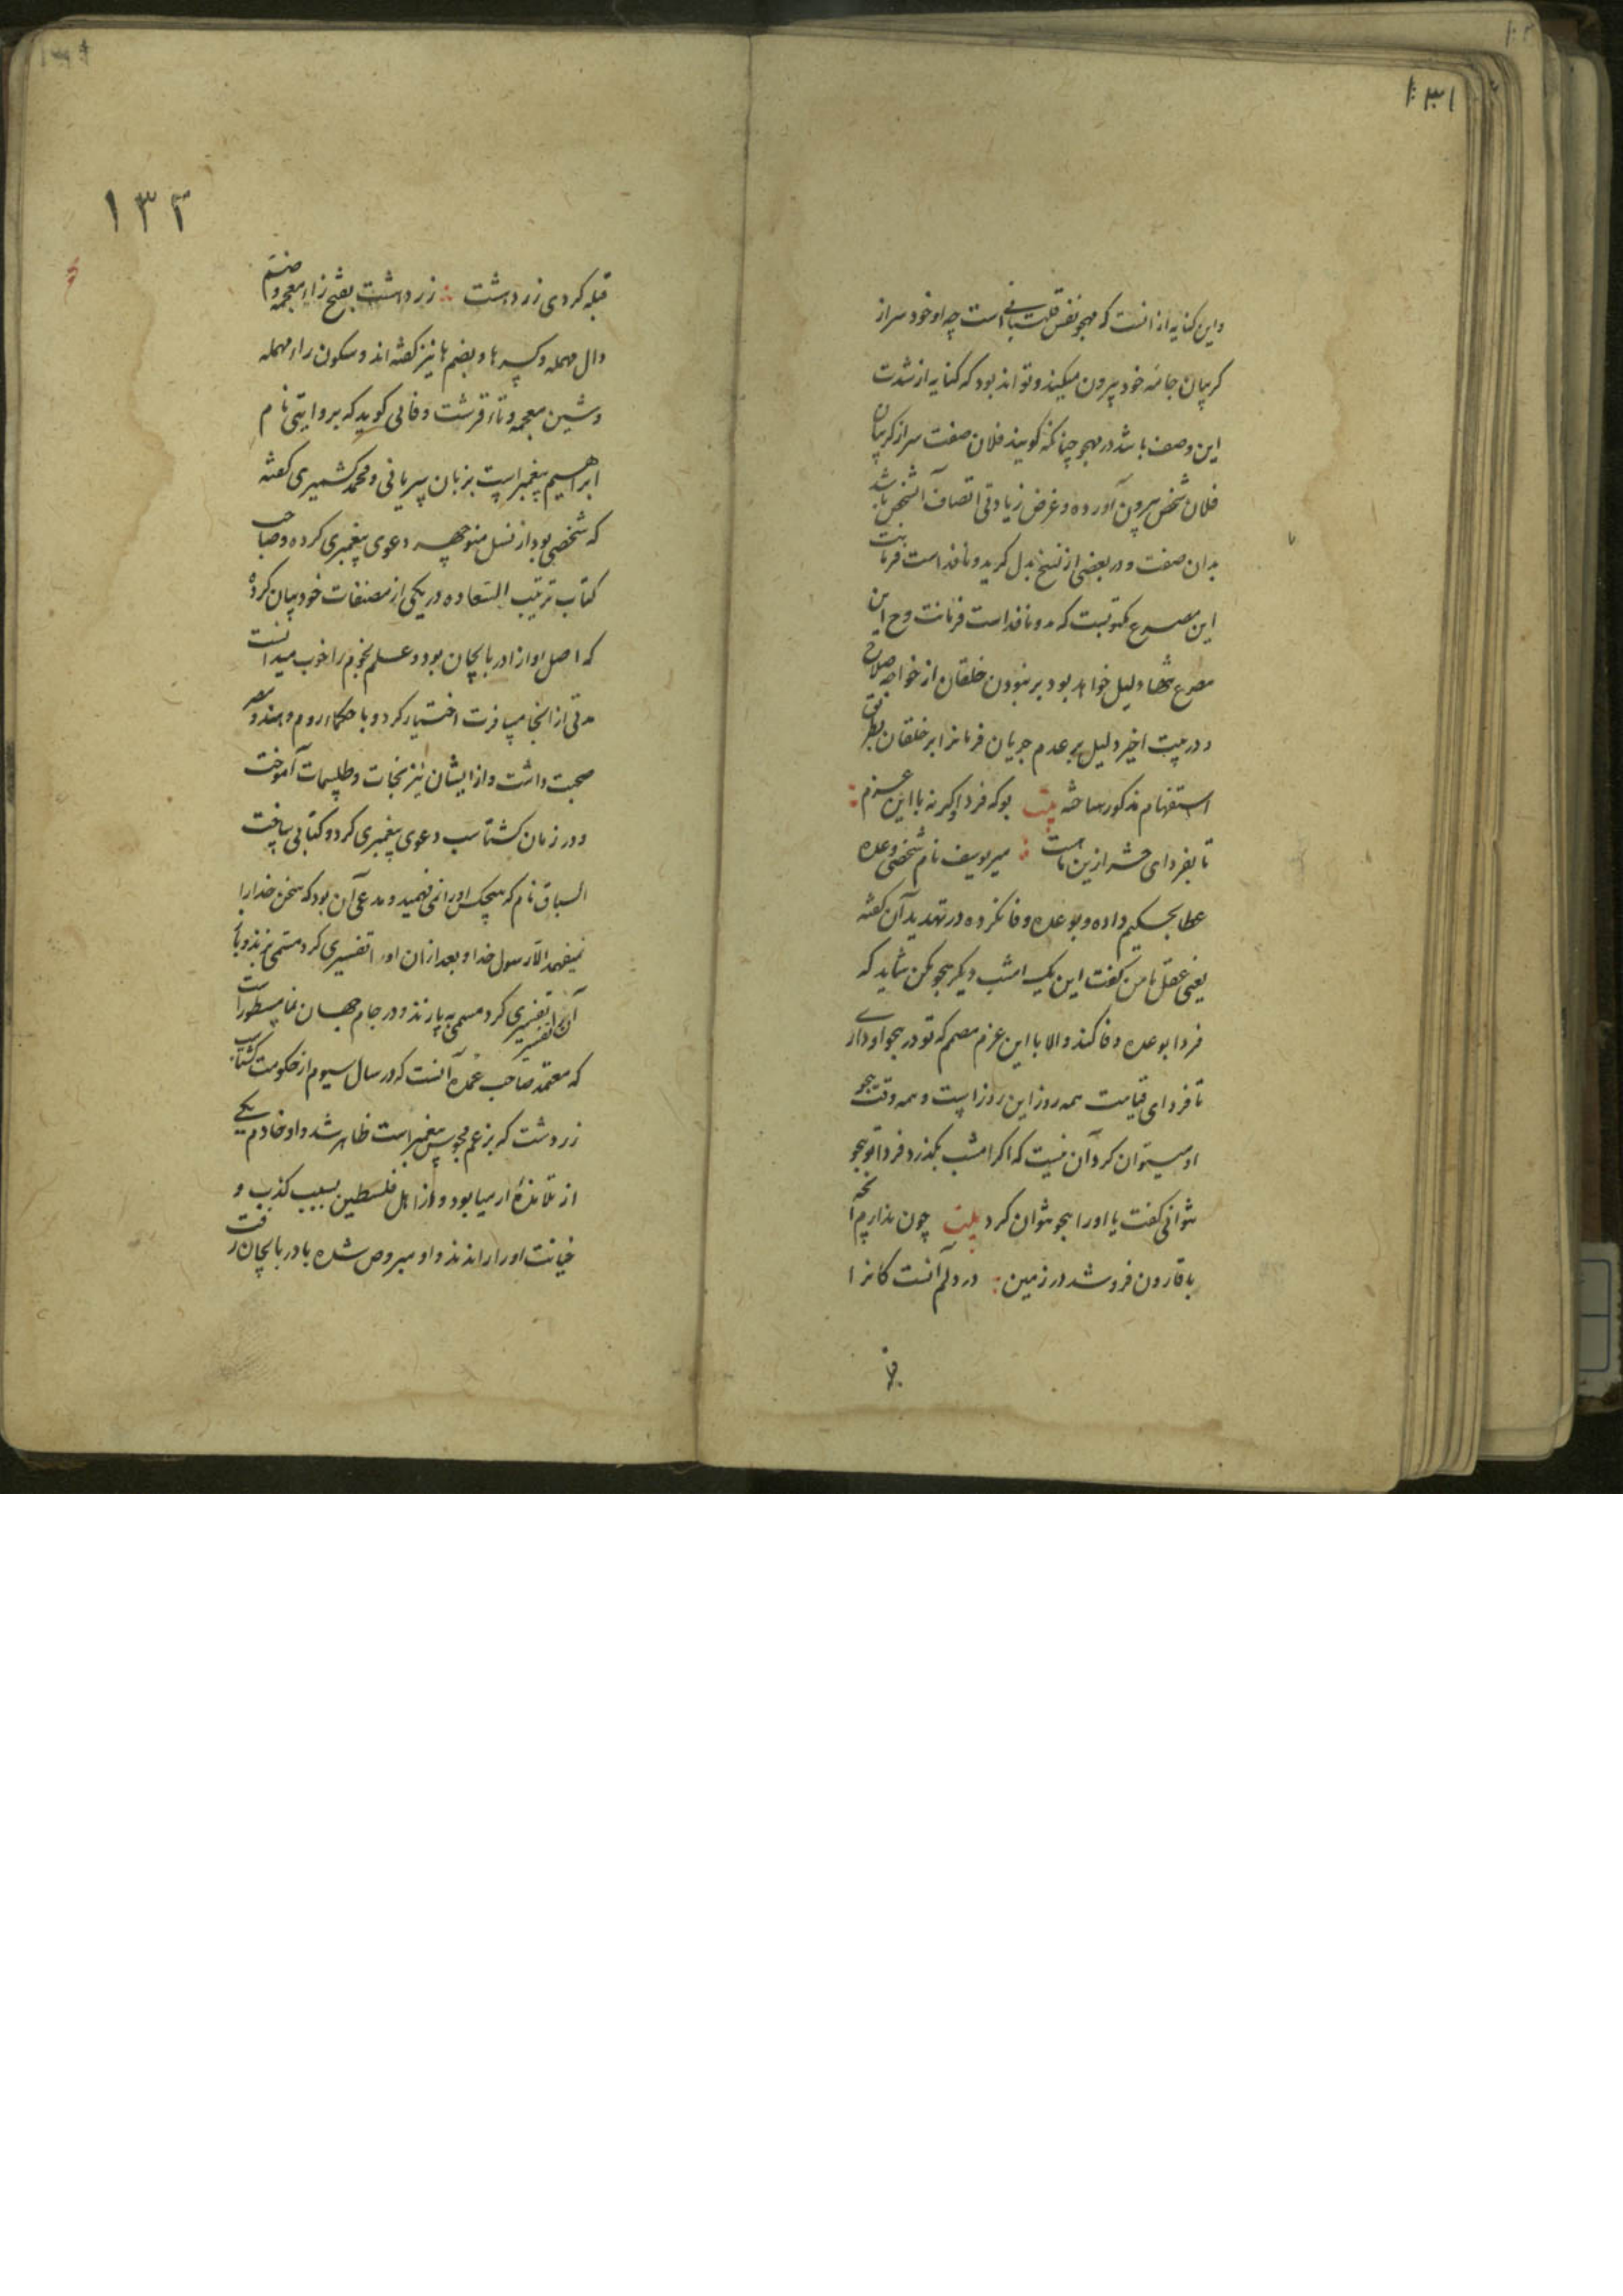 ۱۳۱
واین کنایه از انست که مهجو نفس قلتبانی است چه او خود سر از
کریبان جامه خود بیرون میکند و تواند بود که کنایه از شدت
این وصف باشد در مهجو چنانکه کویند فلان صفت سر از کریبان
فلان شخص بیرون آورده و غرض زیادتی اتصاف آنشخص باشد
بدان صفت و در بعضی از نسخ بدل کریه و نافذ است فرمانت
این مصرع مکتوبست که نه نافذ است فرمانت وح این
مصرع تنها دلیل خواهد بود بر نبودن خلقان از خواجه صلاح
و در بیت اخیر دلیل بر عدم جریان فرمانرا بر خلقان بطریق
استفهام مذکور ساخته بیت بوکه فردا وکرنه با این عزم
تا بفردای حشر ازین ماست میر یوسف نام شخصی وعده
عطا بحکیم داده و بوعده وفا نکرده در تهدید آن کفته
یعنی عقل با من کفت این یک امشب دیکر هجو مکن شاید که
فردا بوعده وفا کند والا با این عزم مصمم که تو در هجو او داری
تا فردای قیامت همه روز این روز است و همه وقت هجو
او میتوان کرد آن نیست که اکر امشب بکذرد فردا تو هجو
نتوانی کفت یا او را هجو نتوان کرد بیت چون ندارم آنچه
با قارون فرو شد در زمین در دلم آنست کانرا
۱۳۲
قبله کردی زردهشت زردهشت بفتح زاء معجمه و ضم
دال مهمله و کسر ها و بضم ها نیز کفته اند و سکون راء مهمله
و شین معجمه و تاء قرشت وفائی کوید که بروایتی نام
ابراهیم پیغمبر است بزبان سریانی و محمد کشمیری کفته
که شخصی بود از نسل منوچهر دعوی پیغمبری کرده و صاحب
کتاب ترتیب السعاده در یکی از مصنفات خود بیان کرده
که اصل او از ادربایجان بود و علم نجوم را خوب میدانست
مدتی از انجا مسافرت اختیار کرد و با حکماء روم و هند و مصر
صحبت داشت و از ایشان نیرنجات و طلسمات آموخت
و در زمان کشتاسب دعوی پیغمبری کرد و کتابی ساخت
السباق نام که هیچکس اورا نمی فهمید و مدعی آن بود که سخن خدا را
نمیفهمد الا رسول خدا و بعد از ان اورا تفسیری کرد مسمی بزند و باز
آن تفسیر را تفسیری کرد مسمی به پازند و در جام جهان نما مسطور است
که معتمد صاحب عمده آنست که در سال سیوم از حکومت کشتاسب
زردشت که بزعم مجوس پیغمبر است ظاهر شد و او خادم یکی
از تلامذهٔ ارمیا بود و از اهل فلسطین بسبب کذب و
خیانت اورا راندند و او مبروص شده بادربایجان رفت